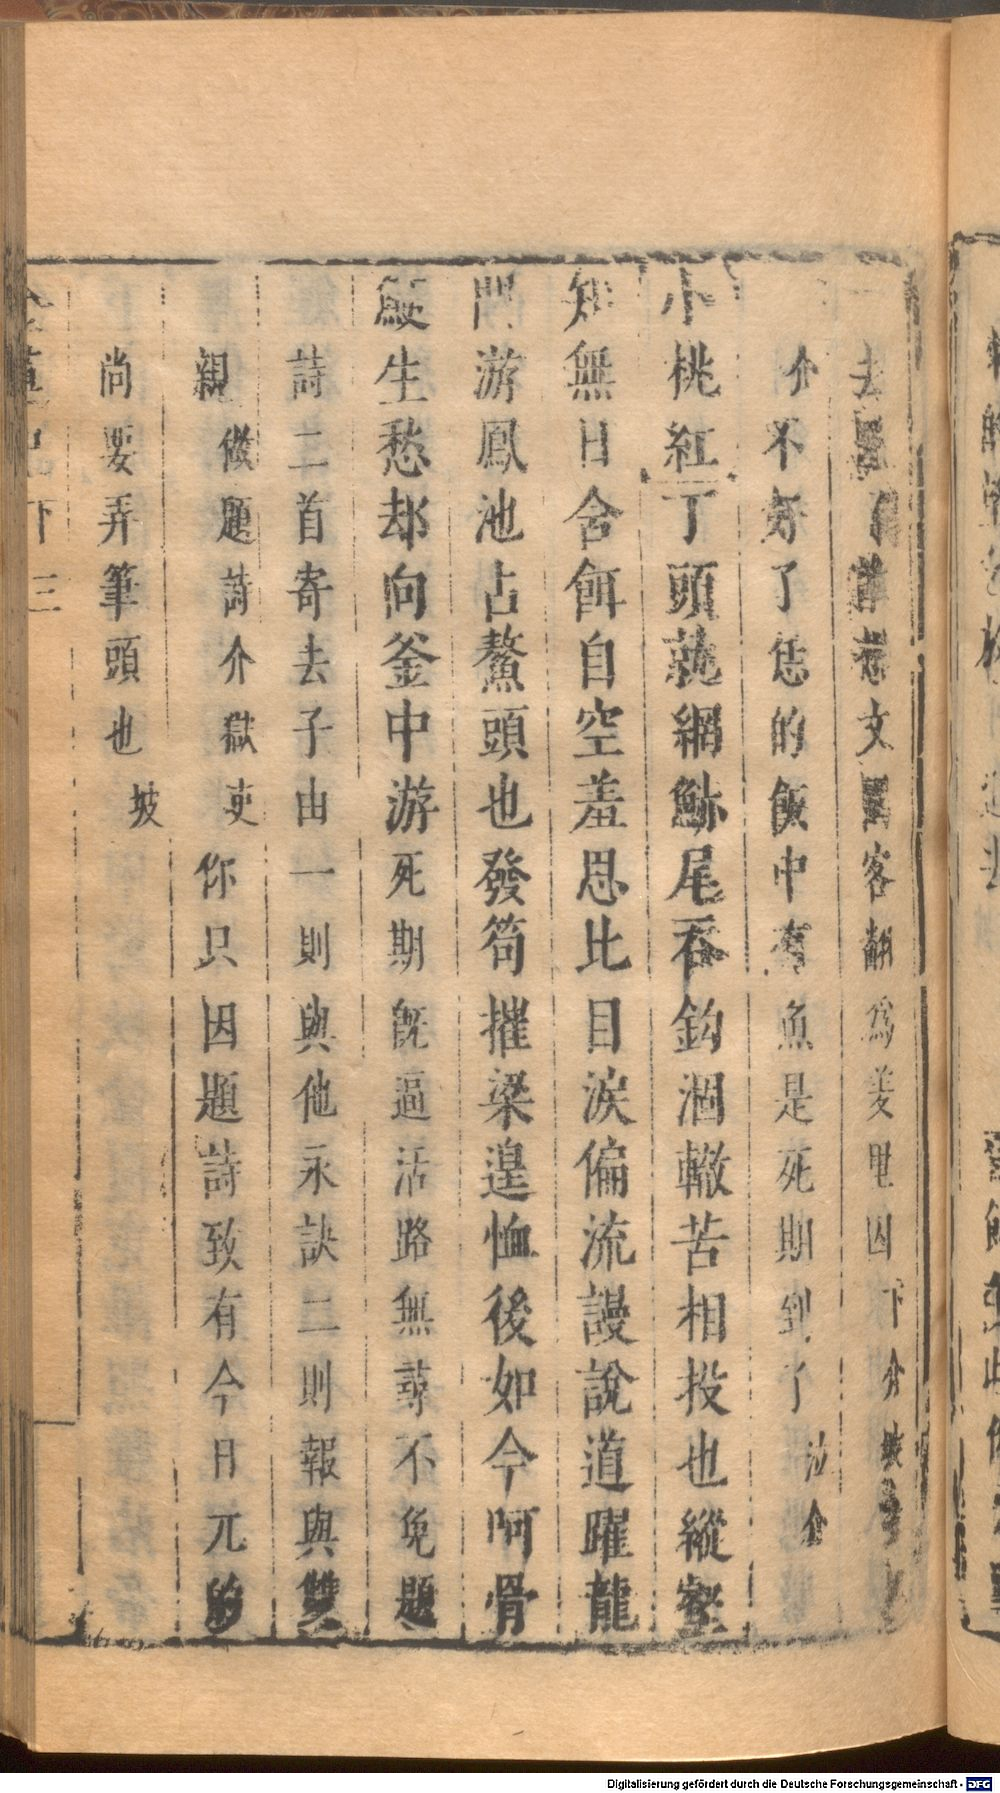 去 了 卷文 客翻為羑里囚下介坡
介不好了恁的飯中有魚是死期到了泣介
小桃紅丁頭蓺網鮎尾吞鈎涸轍苦相投也縱壑
知無日含餌自空羞恩比目淚偏流謾說道躍龍
門游鳳池占鰲頭也發笱摧梁遑恤後如今呵骨
鯁生愁却向釜中游死期旣逼活路無尋不免題
詩二首寄去子由一則與他永訣二則報與雙
親做題詩介獄吏你只因題詩致有今日兀的
尚要弄筆頭也坡
記下
三
Digitalisierung gefördert durch die Deutsche Forschungsgemeinschaft - DFG